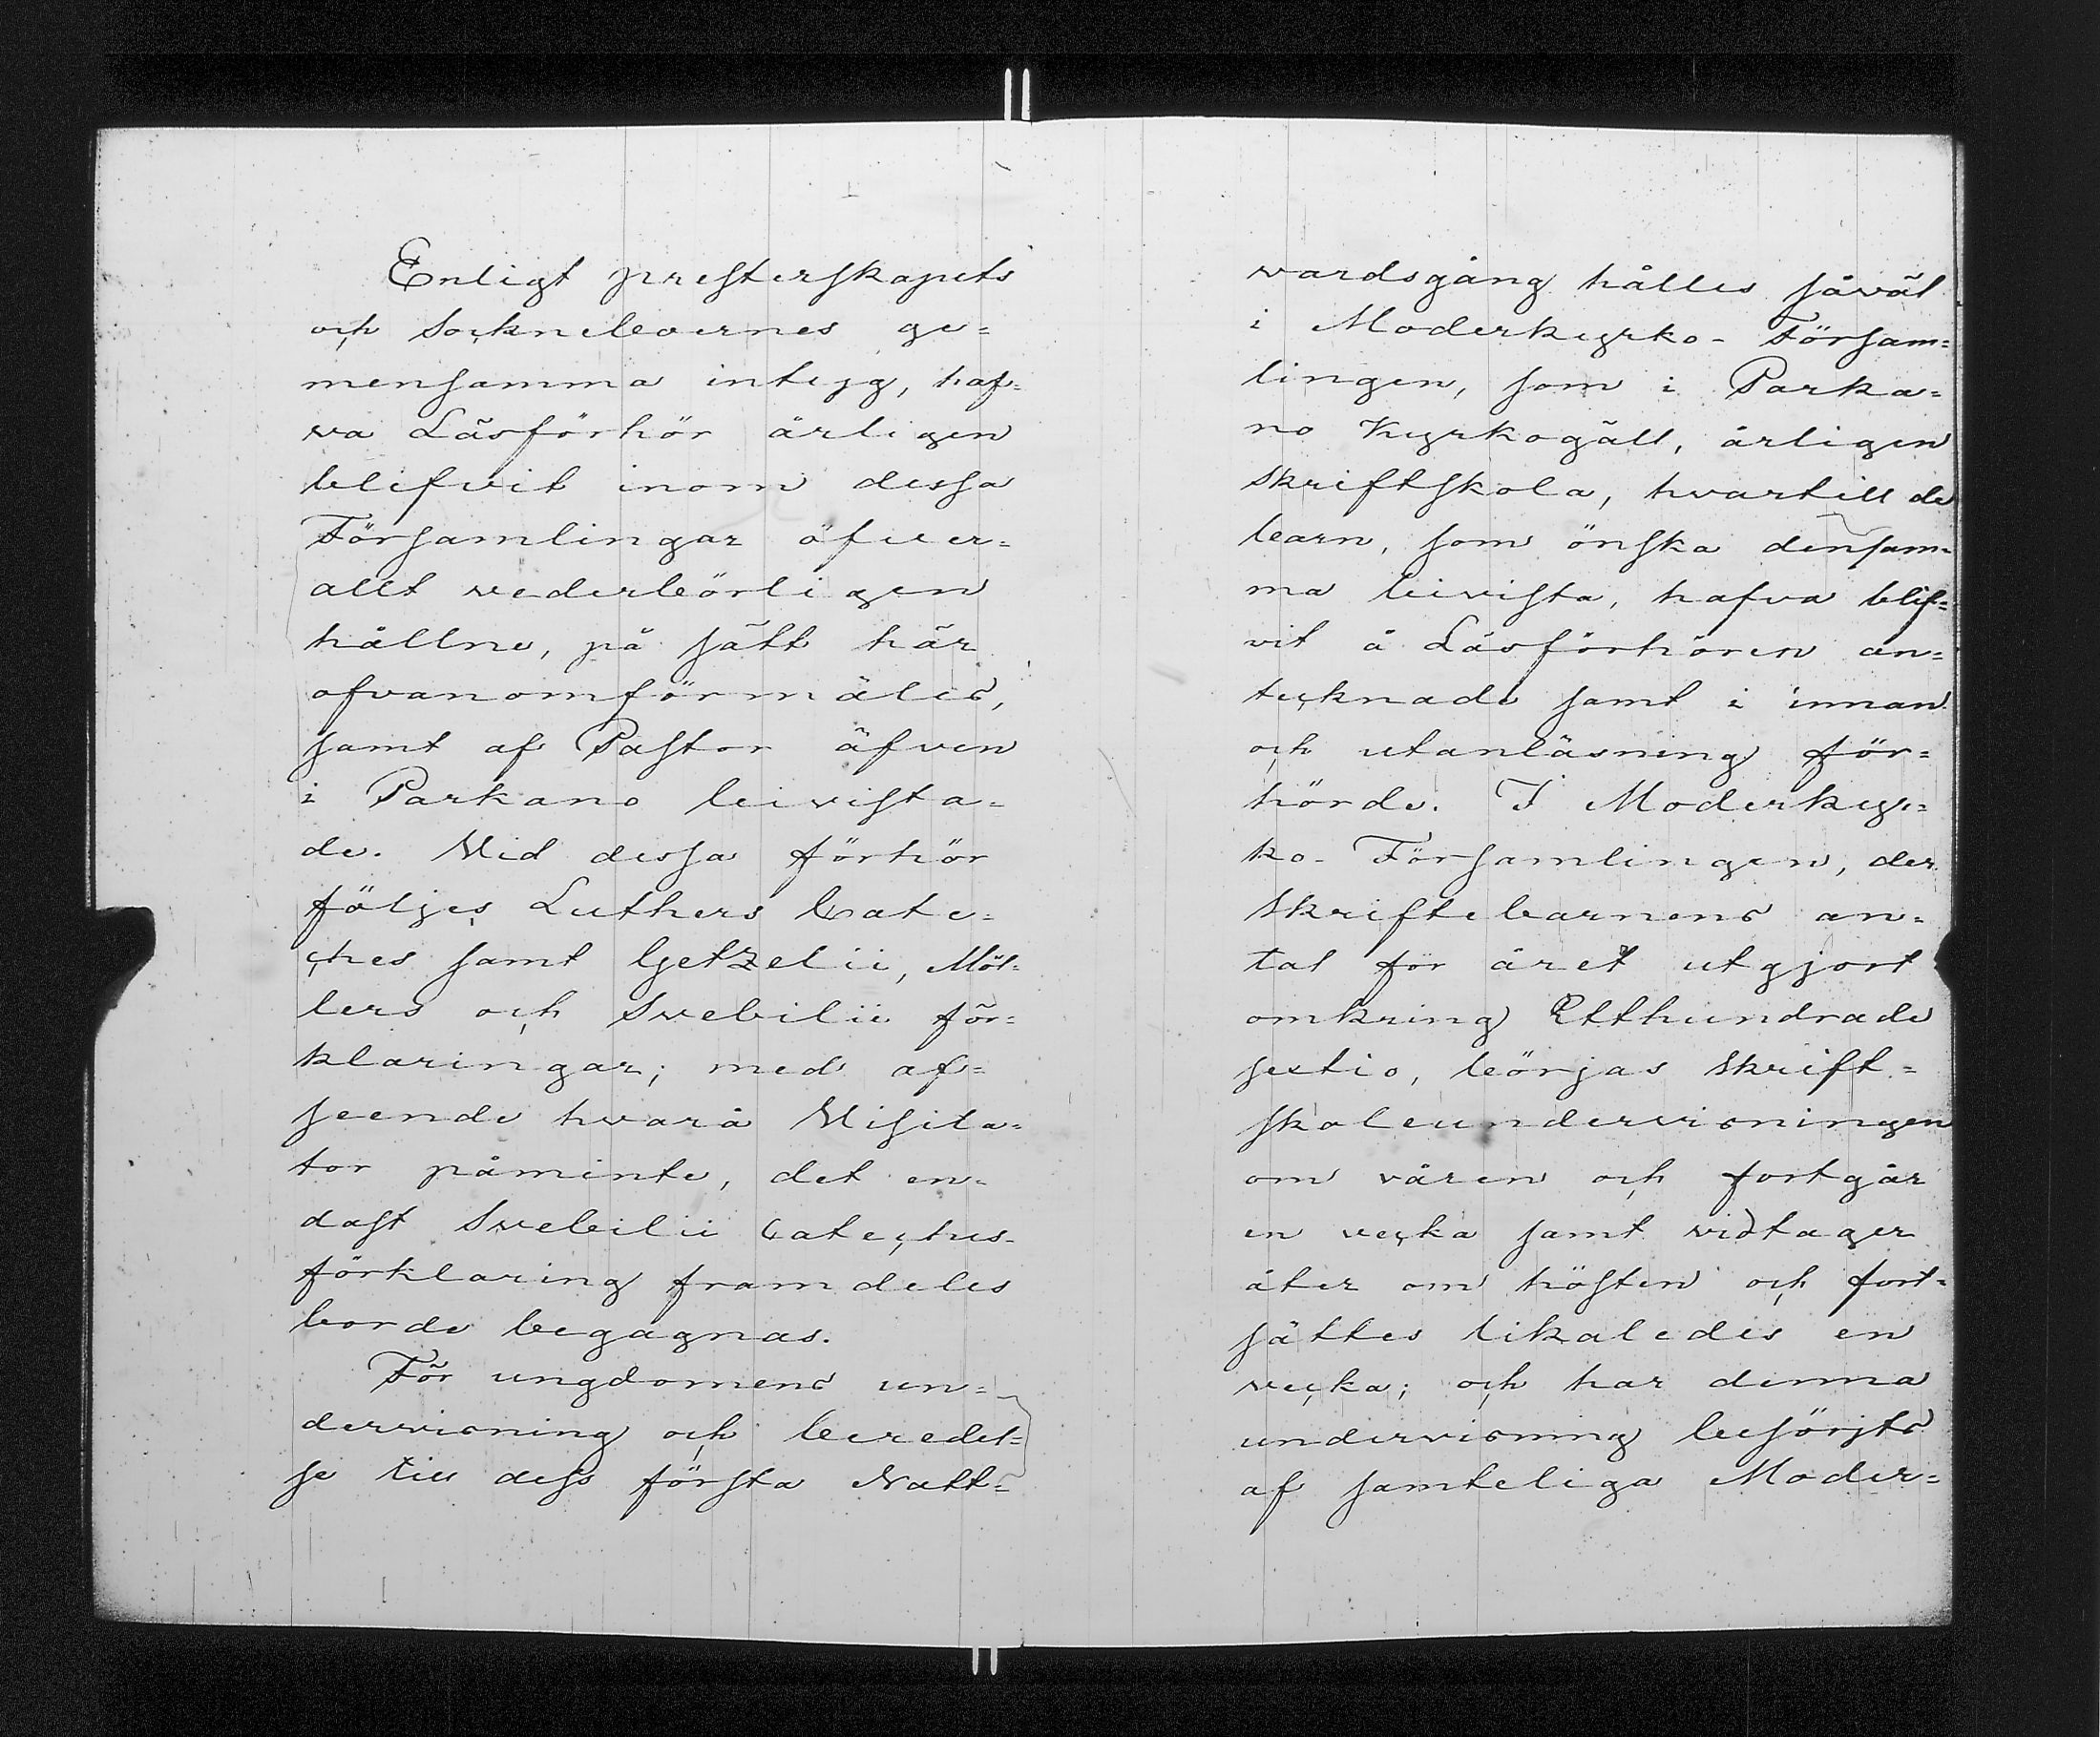 Enligt presterskapets
och Sockneboernes ge=
mensamma intyg, haf=
va Läsförhör årligen
blifvit inom dessa
Församlingar öfver=
allt vederbörligen
hållne, på sätt här
ofvanomförmäles,
samt af Pastor äfven
i Parkano bivista=
de. Vid dessa förhör
följes Luthers Cate=
ches samt Getzelii, Möl=
lers och Svebilii för=
klaringar; med af=
seende hvarå Visita=
tor påminte, det en=
dast Svebilii Catechis=
förklaring framdeles
borde begagnas.
För ungdomens un=
dervisning och beredel=
se till dess första Natt=
vardsgång hålles såväl
i Moderkyrko-Försam=
lingen, som i Parka=
no Kyrkogäll, årligen
Skriftskola, hvartill de
barn, som önska densam=
ma bivista, hafva blif=
vit å Läsförhören an=
tecknade samt i innan
och utanläsning för=
hörde. I Moderkyr=
ko-Församlingen, der
Skriftebarnens an=
tal för året utgjort
omkring Etthundrade
sextio, börjas Skrift=
skoleundervisningen
om våren och fortgår
en vecka samt vidtager
åter om hösten och fort=
sättes likaledes en
vecka; och har denna
undervisning besörjts
af samteliga Moder=